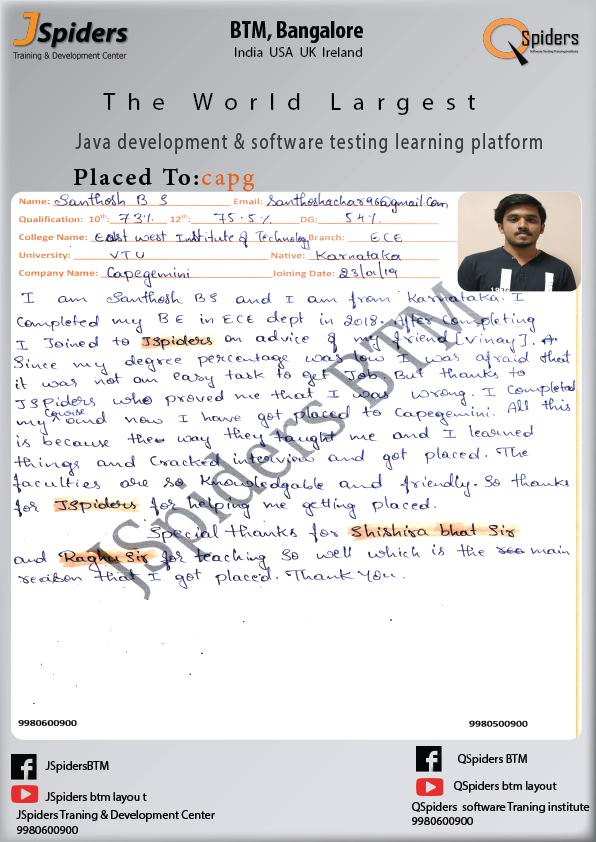 JSpiders
Training & Development Center
BTM, Bangalore
India USA UK Ireland
QSpiders
Software Testing Training Institute
The World Largest
Java development & software testing learning platform
Placed To:capg
Name: Santhosh B S Email: Santhoshachar96@gmail.com
Qualification: 10th: 73% 12th: 75.5% DG: 54%
College Name: East West Institute of Technology Branch: ECE
University: VTU Native: Karnataka
Company Name: Capegemini Joining Date: 23/01/19
I am Santhosh BS and I am from Karnataka. I
Completed my BE in ECE dept in 2018. After Completing
I Joined to JSpiders on advice of my friend [Vinay].
Since my degree percentage was low I was afraid that
it was not an easy task to get Job But thanks to
JSpiders who proved me that I was wrong. I Completed
my course and now I have got placed to Capegemini. All this
is because the way they taught me and I learned
things and Cracked interview and got placed. The
faculties are so Knowledgable and friendly. So thanks
for JSpiders for helping me getting placed.
Special thanks for Shishira bhat Sir
and Raghu Sir for teaching so well which is the main
reason that I got placed. Thank You.
JSpiders BTM
9980600900 9980500900
JSpidersBTM
JSpiders btm layou t
JSpiders Traning & Development Center
9980600900
QSpiders BTM
QSpiders btm layout
QSpiders software Traning institute
9980600900